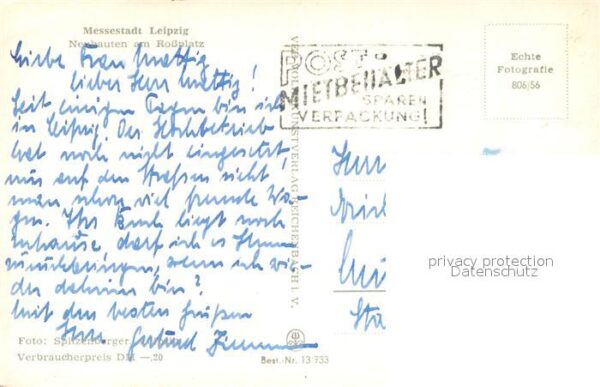 Messestadt Leipzig
Neubauten am Roßplatz
Liebe Frau Mattig
lieber Herr Mattig!
Seit einigen Tagen bin ich
in Leipzig. Der Hochbetrieb
hat noch nicht eingesetzt,
nur auf den Straßen sieht
man schon viel fremde Wa-
gen. Ihr Buch liegt noch
zuhause, darf ich es Ihnen
zurückbringen, wenn ich wie-
der daheim bin?
Mit den besten Grüßen
Ihre Gertrud
Foto:
Verbraucherpreis DM —,20
VEB VOLKSKUNSTVERLAG REICHENBACH I. V.
Best.-Nr. 13 733
POST-
MIETBEHÄLTER
SPAREN
VERPACKUNG!
Echte
Fotografie
806/56
Herr
Sta
privacy protection
Datenschutz